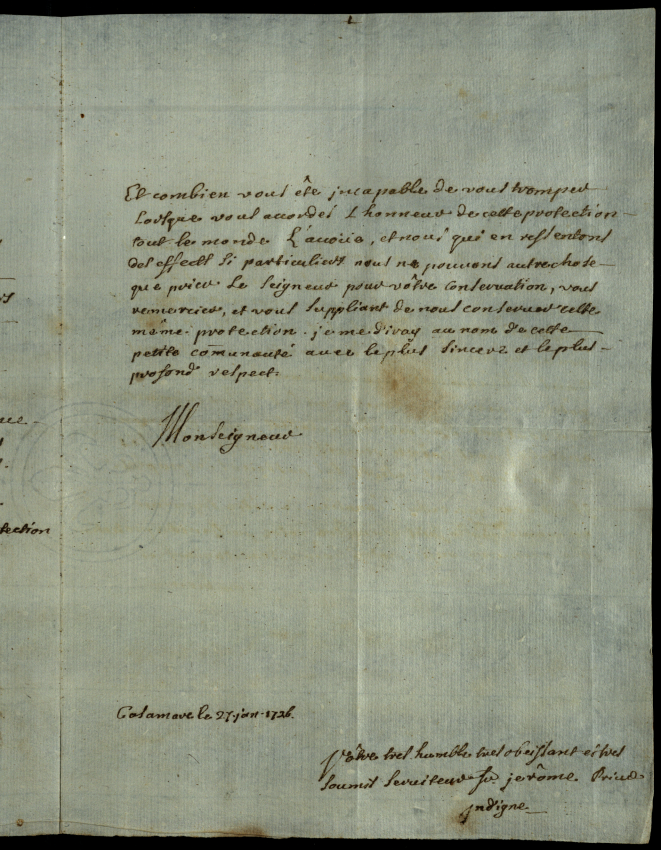 Et combien vous ête jncapable de vous tromper
Lorsque vous accordés L honneur de cette protection
tout le monde L'avoüe, et nous qui en ressentons
des effects si particuliers nous ne pouvons autre chose
que prier Le Seigneur pour vôtre Conservation, vous
remercier, et vous suppliant de nous conserver cette
même protection. je me diray au nom de cette
petite comunauté avec le plus sincere et le plus
profond respect.
Monseigneur
le 27. jan. 1726.
Vôtre tres humble tres obeissant et tres
soumis serviteur fr. jerôme Prieur
jndigne
tection